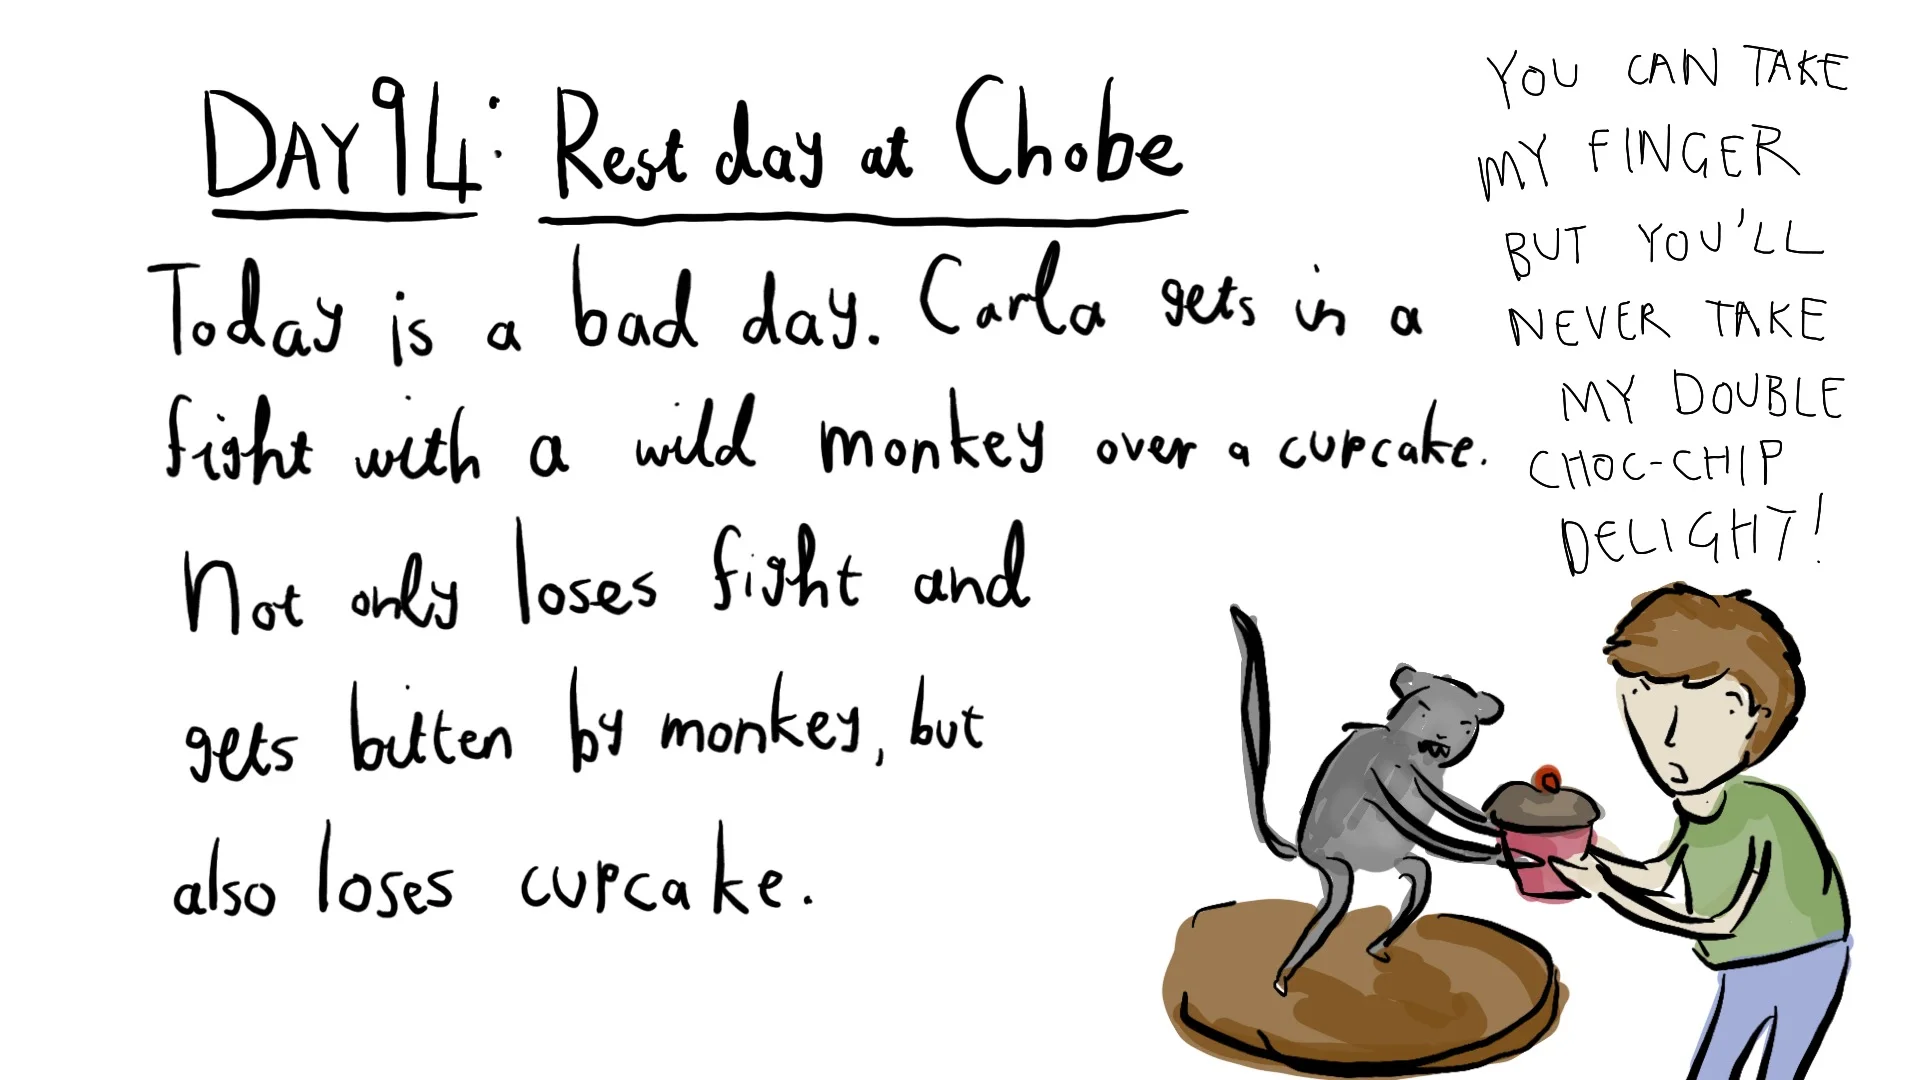 DAY 94: Rest day at Chobe
Today is a bad day. Carla gets in a
fight with a wild monkey over a cupcake.
Not only loses fight and
gets bitten by monkey, but
also loses cupcake.
YOU CAN TAKE
MY FINGER
BUT YOU'LL
NEVER TAKE
MY DOUBLE
CHOC-CHIP
DELIGHT!